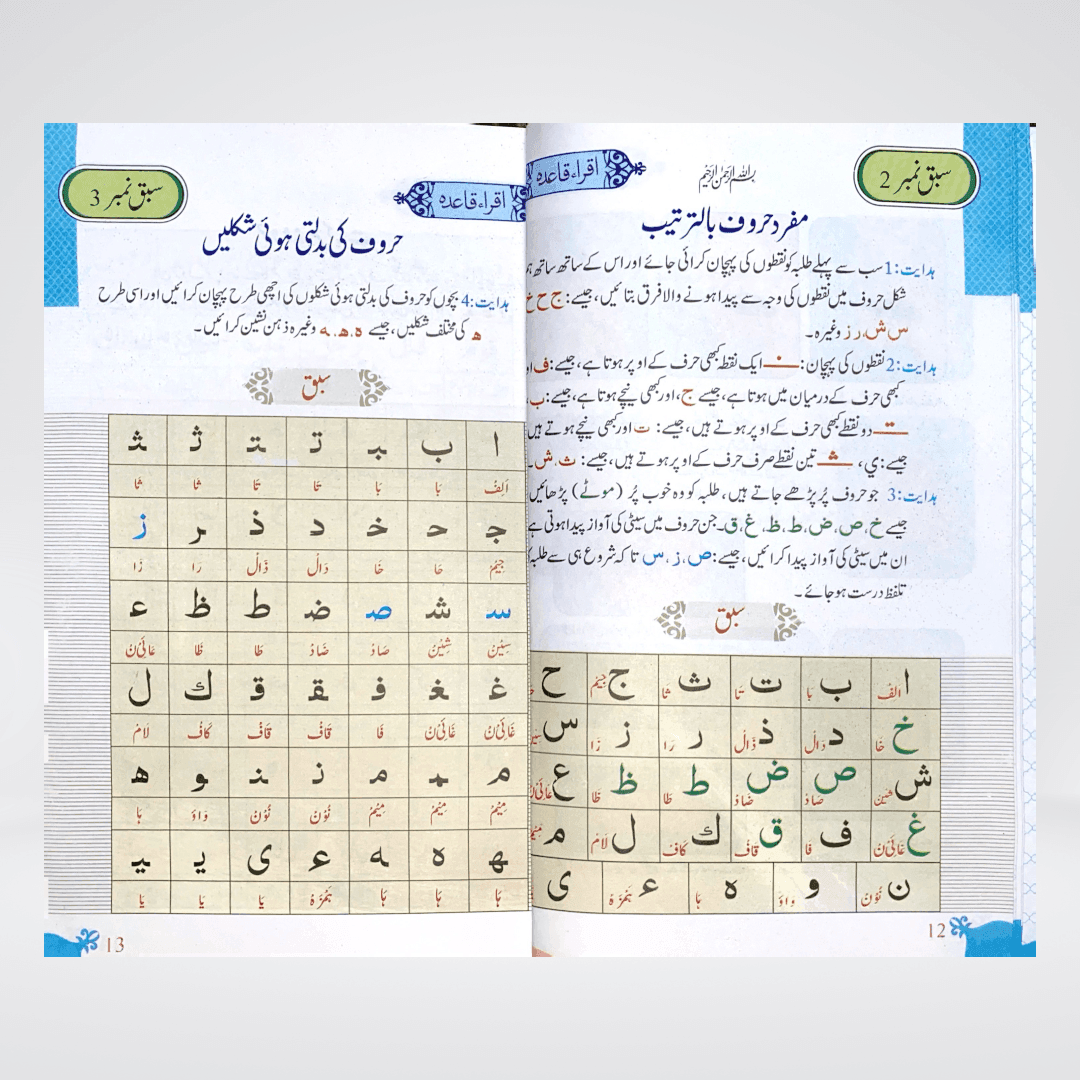 سبق نمبر 2
اقراء قاعدہ
مفرد حروف بالترتیب
ہدایت:1 سب سے پہلے طلبہ کو نقطوں کی پہچان کرائی جائے اور اس کے ساتھ ساتھ
شکل حروف میں نقطوں کی وجہ سے پیدا ہونے والا فرق بتائیں، جیسے: ج ح خ
س ش، ر ز وغیرہ۔
ہدایت:2 نقطوں کی پہچان: ایک نقطہ کبھی حرف کے اوپر ہوتا ہے، جیسے: ف
کبھی حرف کے درمیان میں ہوتا ہے، جیسے ج، اور کبھی نیچے ہوتا ہے، جیسے: ب،
دو نقطے کبھی حرف کے اوپر ہوتے ہیں، جیسے: ت اور کبھی نیچے ہوتے ہیں
جیسے: ي، تین نقطے صرف حرف کے اوپر ہوتے ہیں، جیسے: ث، ش۔
ہدایت:3 جو حروف پُر پڑھے جاتے ہیں، طلبہ کو وہ خوب پُر (موٹے) پڑھائیں
جیسے خ، ص، ض، ط، ظ، غ، ق۔ جن حروف میں سیٹی کی آواز پیدا ہوتی ہے
ان میں سیٹی کی آواز پیدا کرائیں، جیسے: ص، ز، س تا کہ شروع ہی سے طلبہ
تلفظ درست ہوجائے۔
سبق
ا الف ب با ت تا ث ثا ج جیم ح
خ خا د دال ذ ذال ر را ز زا س
ش شین ص صاد ض ضاد ط طا ظ ظا ع
غ ف فا ق قاف ك کاف ل لام م
ن نون و واؤ ہ ہا ء ہمزہ ی
12
سبق نمبر 3
اقراء قاعدہ
حروف کی بدلتی ہوئی شکلیں
ہدایت:4 بچوں کو حروف کی بدلتی ہوئی شکلوں کی اچھی طرح پہچان کرائیں اور اسی طرح
ھ کی مختلف شکلیں، جیسے ہ، ھ، ہ وغیرہ ذہن نشین کرائیں۔
سبق
ا ب بـ ت تـ ث ثـ
الف با با تا تا ثا ثا
جـ حـ خـ د ذ ر ز
جیم حا خا دال ذال را زا
سـ شـ صـ ضـ ط ظ عـ
سین شین صاد ضاد طا ظا عائین
غـ ـغـ فـ ـقـ قـ ك ل
غائین غائین فا قاف قاف کاف لام
مـ ـمـ مـ نـ ـنـ و ھ
میم میم میم نون نون واؤ ہا
ـهـ ہ ـہ ء ی یـ ـیـ
ہا ہا ہا ہمزہ یا یا یا
13